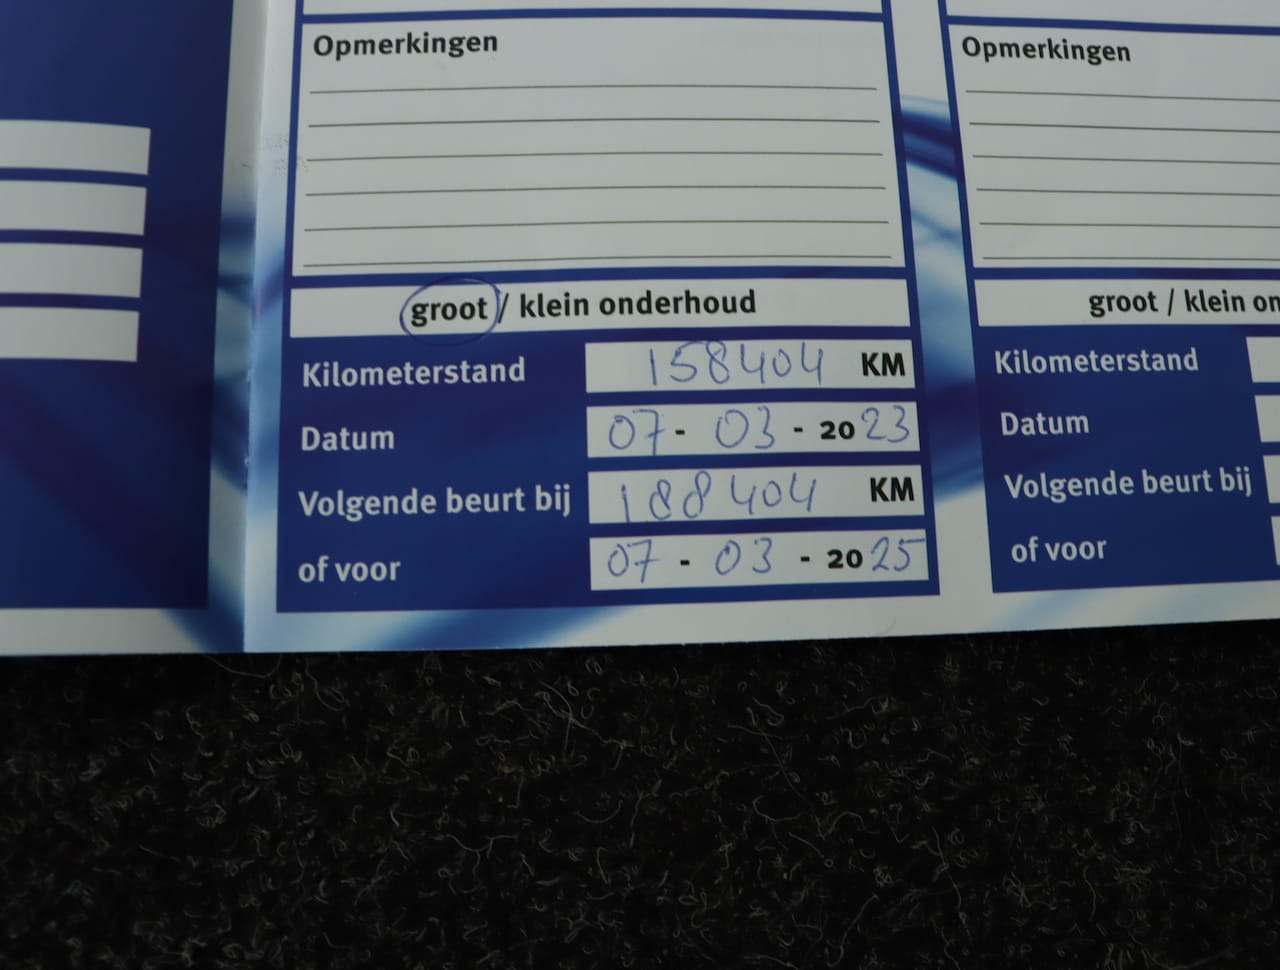 Opmerkingen
groot / klein onderhoud
Kilometerstand 158404 KM
Datum 07 - 03 - 2023
Volgende beurt bij 188404 KM
of voor 07 - 03 - 2025
Opmerkingen
groot / klein on
Kilometerstand
Datum
Volgende beurt bij
of voor